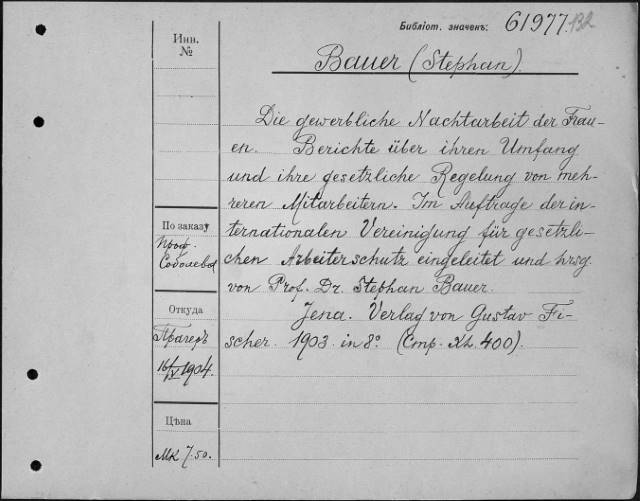 Библіот. значенъ: 61977. 132
Инв.
№
Bauer (Stephan).
Die gewerbliche Nachtarbeit der Frau-
en. Berichte über ihren Umfang
und ihre gesetzliche Regelung von meh-
reren Mitarbeitern. Im Auftrage der in-
ternationalen Vereinigung für gesetzli-
chen Arbeiterschutz eingeleitet und hrsg.
von Prof. Dr. Stephan Bauer.
Jena. Verlag von Gustav Fi-
scher. 1903. in 8º. (Стр. XL. 400).
По заказу
Проф.
Соболева
Откуда
Прагеръ
16/IV 1904.
Цѣна
Мк 7.50.